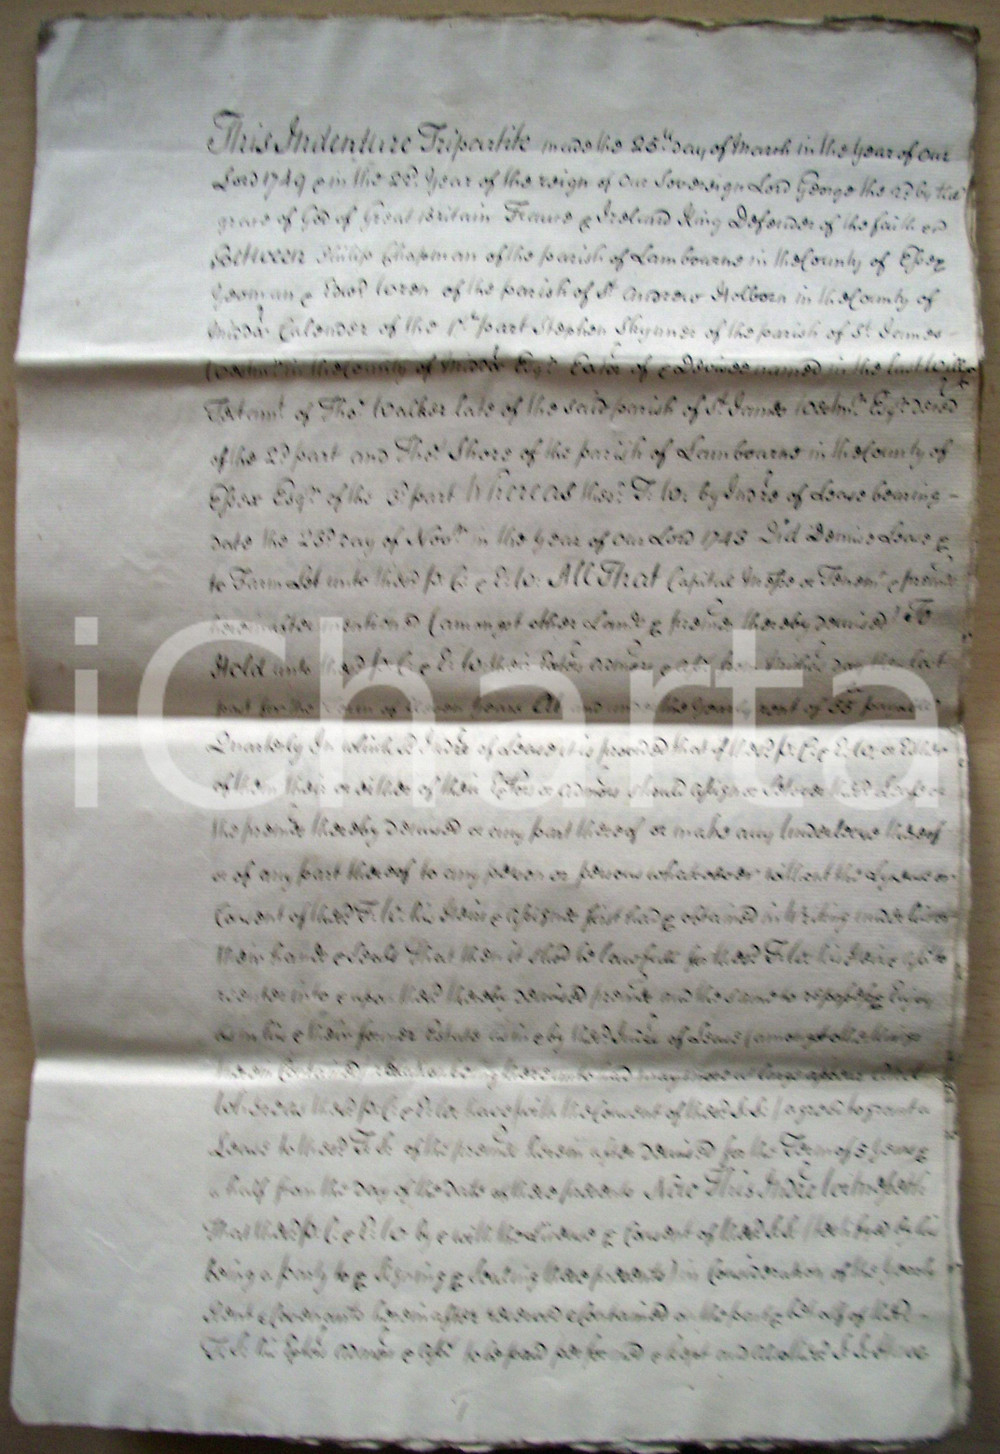 This Indenture Tripartite made the 25th day of March in the Year of our
Lord 1749 & in the 22d Year of the reign of our Sovereign Lord George the 2d by the
grace of God of Great Britain France & Ireland King Defender of the faith &c
Between Philip Chapman of the parish of Lambourne in the County of Essex
Yeoman & Edwd of the parish of St Andrew Holborn in the County of
Middx Calender of the 1st part Stephen Skynner of the parish of St James
Westmr in the County of Middx Esqr Exor of & Devisee named in the last Will &
Testamt of Thos Walker late of the said parish of St James Westmr Esqr decd
of the 2d part and Thos Shore of the parish of Lambourne in the County of
Essex Esqr of the 3d part Whereas the sd T. W. by Indre of Lease bearing
date the 23d day of Novr in the Year of our Lord 1743 Did Demise Lease &
to Farm Let unto the sd P. C. & E. W. All That Capital Messe or Tenemt & premes
hereinafter mentioned (amongst other Lands & premes thereby demised) To
Hold unto the sd P. C. & E. W. their Exors Admors & ass from Michs day then last
past for the Term of Eleven Years At and under the Yearly rent of 55 pounds
Quarterly In which sd Indre of Lease it is provided that if the sd P. C. & E. W. or Either
of them their or either of their Exors or Admors should assign or Set over the sd Lease or
the premes thereby demised or any part thereof or make any Underlease thereof
or of any part thereof to any person or persons whatsoever without the Lycence or
Consent of the sd T. W. his Heirs & assigns first had & obtained in Writing under his or
their hands & Seals That then it shod be lawfull for the sd T. W. his Heirs & ass to
reenter into & upon the sd thereby demised premes and the same to repossess & Enjoy
as in his & their former Estate as in & by the sd Indre of Lease (amongst other things
therein Contained) relation being thereunto had may more at large appear And
Whereas the sd P. C. & E. W. have with the Consent of the sd S. S. agreed to grant a
Lease to the sd T. S. of the premes herein after demised for the Term of 5 Years &
a half from the day of the date of these presents Now This Indre Witnesseth
that the sd P. C. & E. W. by & with the Licence & Consent of the sd S. S. (testifyed by his
being a party to & Signing & Sealing these presents) in Consideration of the Yearly
Rent & Covenants herein after reserved & Contained on the part & behalf of the sd
T. S. his Exors Admors & ass to be paid performed & kept and
iCharta